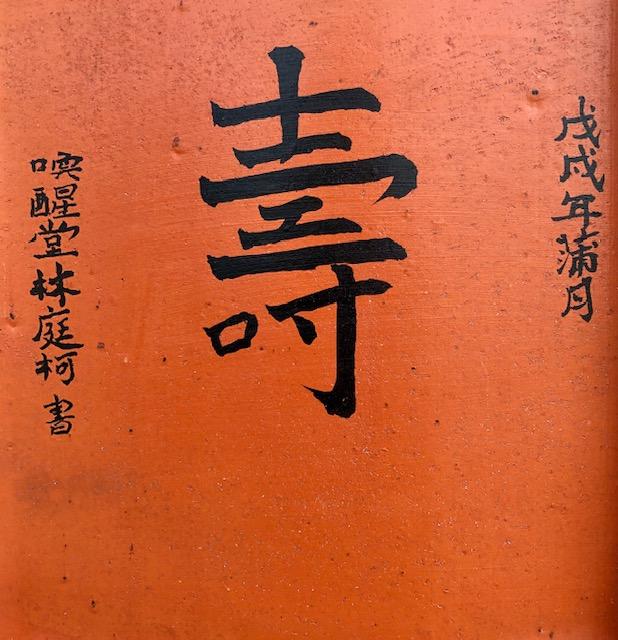 戊戌年蒲月
壽
喚醒堂林庭柯書